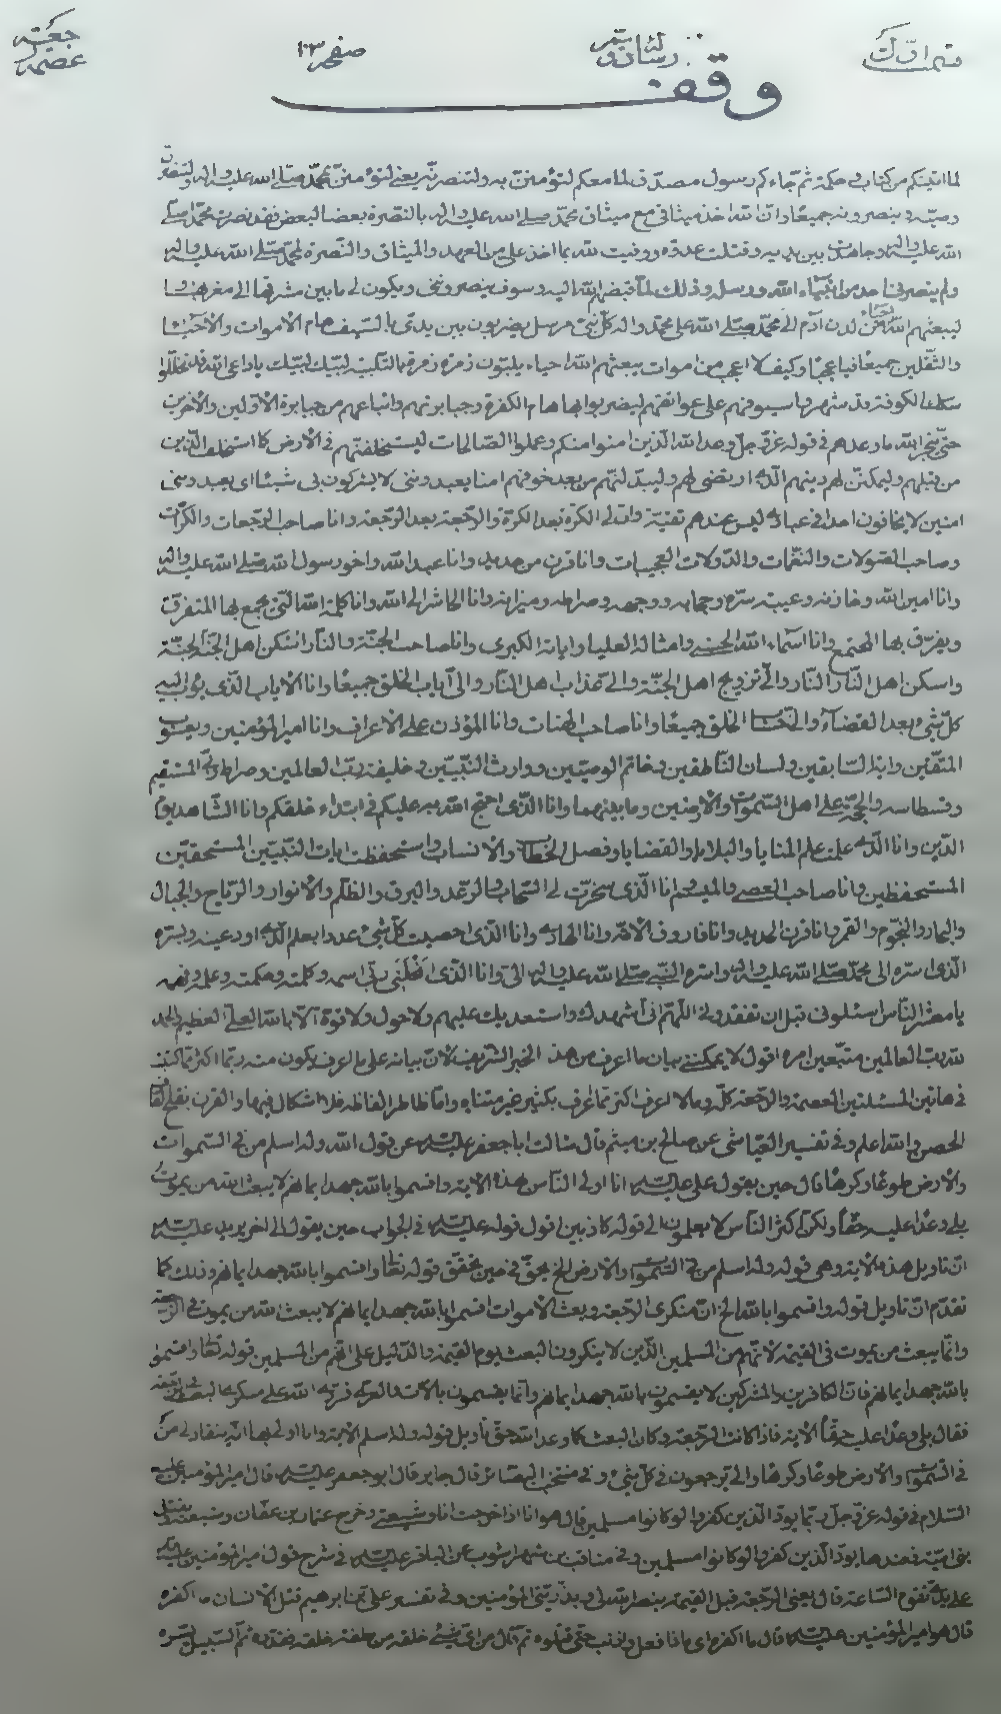 قسمت اول
رسائل و
صفحه ١٠٣
رجعت
عصمة
وقف
لما اتيتكم من كتاب و حكمة ثم جاءكم رسول مصدق لما معكم لتؤمنن به ولتنصرنه يعني لتؤمنن بمحمد صلى الله عليه واله ولتنصرن
وصيه وينصرونه جميعا وان الله اخذ ميثاقي مع ميثاق محمد صلى الله عليه واله بالنصرة بعضنا لبعض فقد نصرت محمدا صلى
الله عليه واله وجاهدت بين يديه وقتلت عدوه ووفيت لله بما اخذ علي من العهد والميثاق والنصرة لمحمد صلى الله عليه واله
ولم ينصرني احد من انبياء الله ورسله وذلك لما قبضهم الله اليه وسوف ينصرونني ويكون لي ما بين مشرقها الى مغربها و
ليبعثهم الله احياء من لدن ادم الى محمد صلى الله على محمد واله كل نبي مرسل يضربون بين يدي بالسيف هام الاموات والاحياء
والثقلين جميعا فيا عجبا وكيف لا اعجب من اموات يبعثهم الله احياء يلبون زمرة زمرة بالتلبية لبيك لبيك يا داعي الله قد تخللوا
سكك الكوفة قد شهروا سيوفهم على عواتقهم ليضربوا بها هام الكفرة وجبابرتهم واتباعهم من جبابرة الاولين والاخرين
حتى ينجز الله ما وعدهم في قوله عز وجل وعد الله الذين امنوا منكم وعملوا الصالحات ليستخلفنهم في الارض كما استخلف الذين
من قبلهم وليمكنن لهم دينهم الذي ارتضى لهم وليبدلنهم من بعد خوفهم امنا يعبدونني لا يشركون بي شيئا اي يعبدونني
امنين لا يخافون احدا في عبادي ليس عندهم تقية وان لي الكرة بعد الكرة والرجعة بعد الرجعة وانا صاحب الرجعات والكرات
وصاحب الصولات والنقمات والدولات العجيبات وانا قرن من حديد وانا عبد الله واخو رسول الله صلى الله عليه واله
وانا امين الله وخازنه وعيبة سره وحجابه ووجهه وصراطه وميزانه وانا الحاشر الى الله وانا كلمة الله التي يجمع بها المتفرق
ويفرق بها المجتمع وانا اسماء الله الحسنى وامثاله العليا واياته الكبرى وانا صاحب الجنة والنار اسكن اهل الجنة الجنة
واسكن اهل النار النار والي تزويج اهل الجنة والي عذاب اهل النار والي اياب الخلق جميعا وانا الاياب الذي يؤب اليه
كل شيء بعد القضاء والي حساب الخلق جميعا وانا صاحب الهنات وانا المؤذن على الاعراف وانا امير المؤمنين ويعسوب
المتقين واية السابقين ولسان الناطقين وخاتم الوصيين ووارث النبيين وخليفة رب العالمين وصراط ربي المستقيم
وقسطاسه والحجة على اهل السموات والارضين وما بينهما وانا الذي احتج الله به عليكم في ابتداء خلقكم وانا الشاهد يوم
الدين وانا الذي علمت علم المنايا والبلايا والقضايا وفصل الخطاب والانساب واستحفظت ايات النبيين المستحقين
المستحفظين وانا صاحب العصى والميسم وانا الذي سخرت لي السحاب والرعد والبرق والظلم والانوار والرياح والجبال
والبحار والنجوم والقمر وانا قرن الحديد وانا فاروق الامة وانا الهادي وانا الذي احصيت كل شيء عددا بعلم الله الذي اودعنيه وبسره
الذي اسره الى محمد صلى الله عليه واله واسره النبي صلى الله عليه واله الي وانا الذي انحلني ربي اسمه وكلمته وحكمته وعلمه وفهمه
يا معشر الناس اسئلوني قبل ان تفقدوني اللهم اني اشهدك واستعديك عليهم ولا حول ولا قوة الا بالله العلي العظيم والحمد
لله رب العالمين متبعين امره اقول لا يمكنني بيان ما اعرف من هذا الخبر الشريف لان بيانه على ما اعرف يكون منه ربما اكثر مما كتبت
في هاتين المسئلتين العصمة والرجعة كله وما لا اعرف اكثر مما اعرف بكثير غير متناه واما ظاهر الفاظه فلا اشكال فيها والقرن بفتح القاف
الحصن والله اعلم وفي تفسير العياشي عن صالح بن ميثم قال سالت ابا جعفر عليه السلام عن قول الله وله اسلم من في السموات
والارض طوعا وكرها قال حين يقول علي عليه السلام انا اولى الناس بهذه الاية واقسموا بالله جهد ايمانهم لا يبعث الله من يموت
بلى وعدا عليه حقا ولكن اكثر الناس لا يعلمون الى قوله كاذبين اقول قوله عليه السلام في الجواب حين يقول الى اخر يريد عليه السلام
ان تاويل هذه الاية وهي قوله وله اسلم من في السموات والارض الخ تحقق في حين تحقق قوله تعالى واقسموا بالله جهد ايمانهم وذلك كما
تقدم ان تاويل قوله واقسموا بالله الخ ان منكري الرجعة وبعث الاموات اقسموا بالله جهد ايمانهم لا يبعث الله من يموت في الرجعة
وانما يبعث من يموت في القيمة لانهم من المسلمين الذين لا ينكرون البعث يوم القيمة والدليل على انهم من المسلمين قوله تعالى واقسموا
بالله جهد ايمانهم فان الكافرين والمشركين لا يقسمون بالله جهد ايمانهم وانما يقسمون باللات والعزى فرد الله على منكري البعث في الرجعة
فقال بلى وعدا عليه حقا الاية فاذا كانت الرجعة وكان البعث كما وعد الله حق تاويل قوله وله اسلم الاية وانا اولى بها انه ينقاد لي من
في السموات والارض طوعا وكرها والي ترجعون في كل شيء وفي منتخب البصائر قال جابر قال ابو جعفر عليه السلام قال امير المؤمنين عليه
السلام في قوله عز وجل ربما يود الذين كفروا لو كانوا مسلمين قال هو انا اذا خرجت انا وشيعتي وخرج عثمان بن عفان وشيعته ونقتل
بني امية فعندها يود الذين كفروا لو كانوا مسلمين وفي مناقب بن شهراشوب عن الباقر عليه السلام في شرح قول امير المؤمنين عليه السلام
على يدي تقوم الساعة قال يعني الرجعة قبل القيمة ينصر الله بي وبذريتي المؤمنين وفي تفسير علي بن ابرهيم قتل الانسان ما اكفره
قال هو امير المؤمنين عليه السلام قال ما اكفره اي ماذا فعل واذنب حتى قتلوه ثم قال من اي شيء خلقه من نطفة خلقه فقدره ثم السبيل يسره